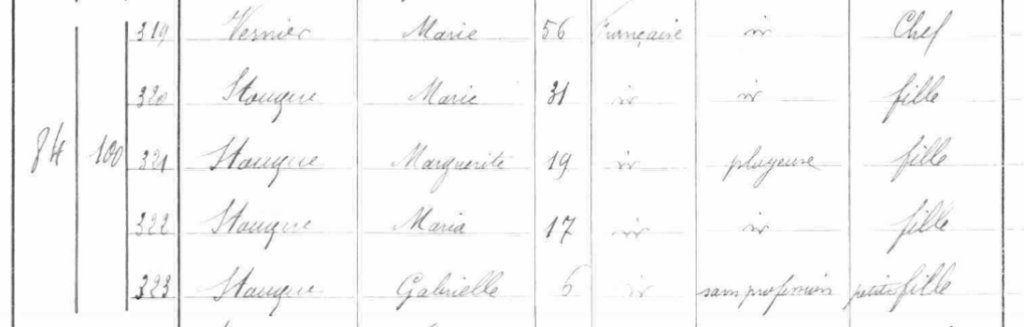 319 Vernier Marie 56 française ir ir Chef
320 Stouque Marie 31 ir ir fille
84 100 321 Stouque Marguerite 19 ir ployeuse fille
322 Stouque Maria 17 ir ir fille
323 Stouque Gabrielle 6 ir sans profession petite fille